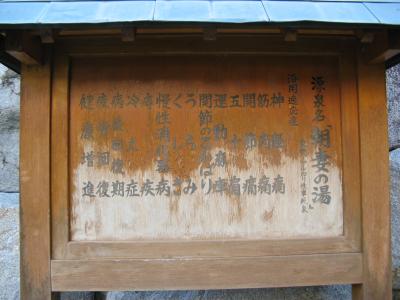 源泉名「朝妻の湯」
浴用適応症
神経痛
筋肉痛
関節痛
五十肩
運動麻痺
関節のこわばり
うちみ
くじき
慢性消化器病
痔疾
冷え症
病後回復期
疲労回復
健康増進